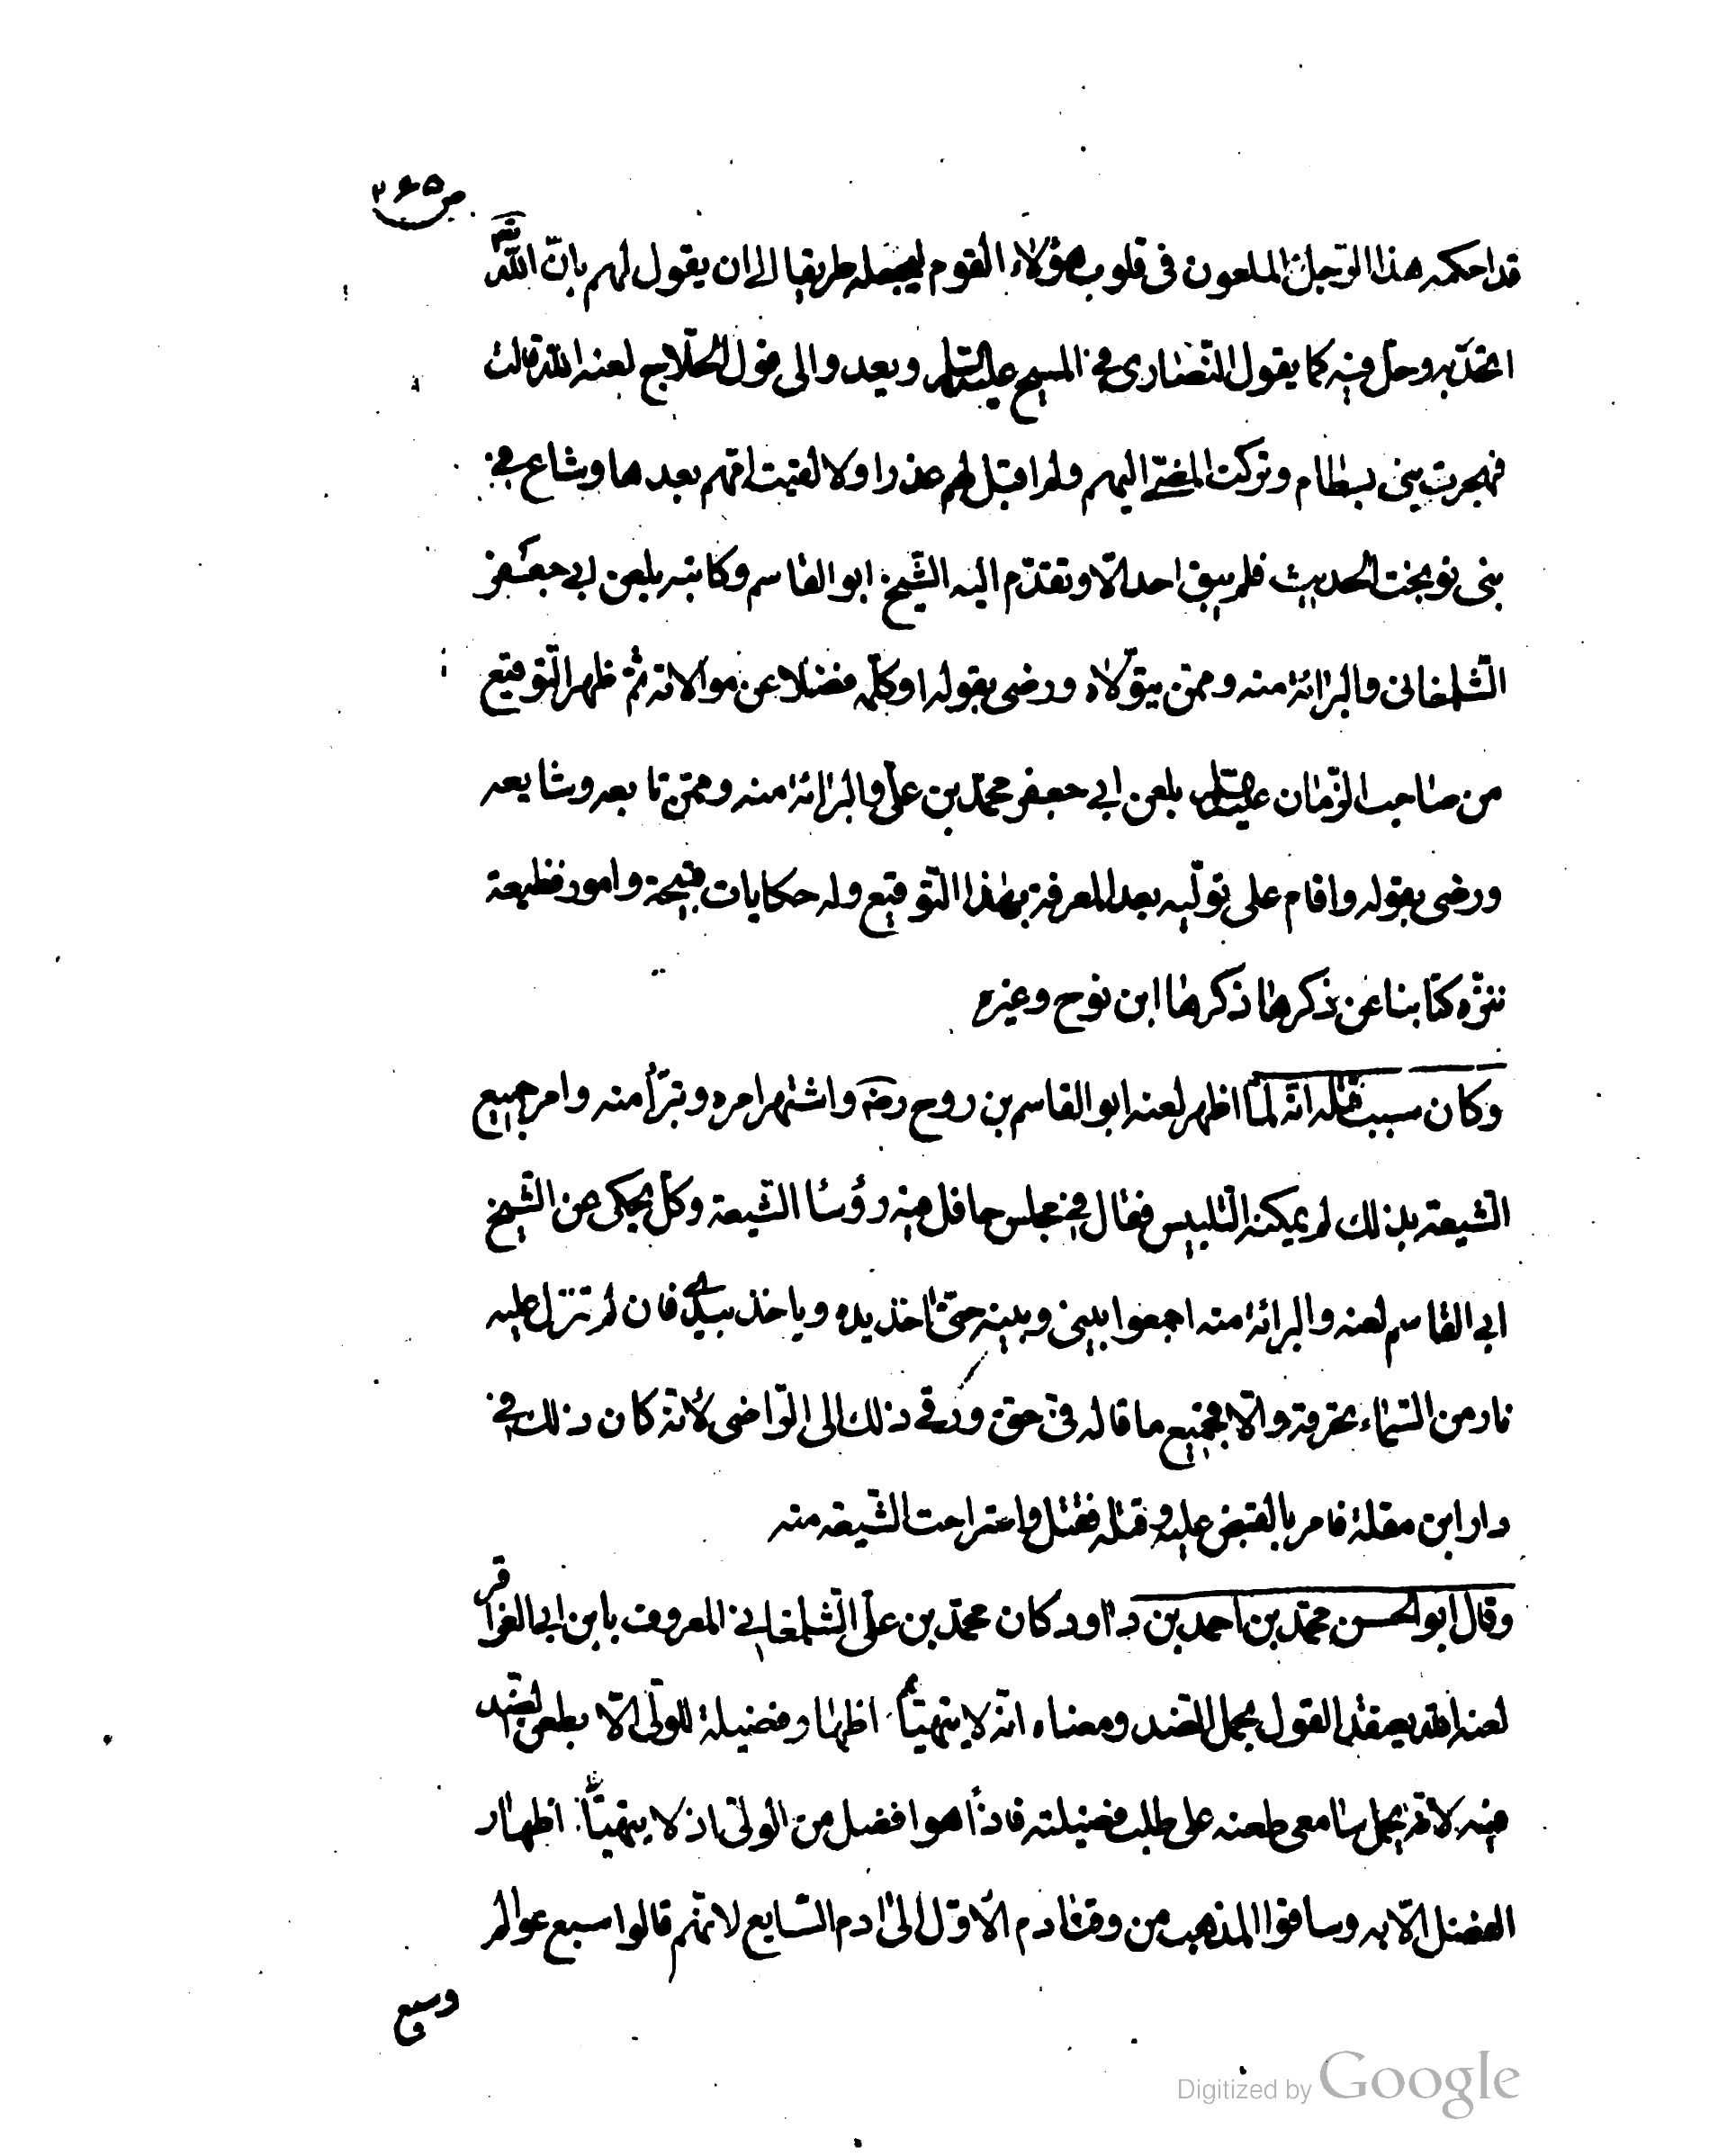 ص٢٦٥
قد احكمه هذا الرّجل الملعون فى قلوب هؤلاء القوم ليجعله طريقا الى ان يقول لهم بانّ اللّٰه تعہ
اتّحد به وحلّ فيه كما يقول النّصارى فى المسيح عليه السلم ويعد والى قول الحلّاج لعنه اللّه قالت
فهجرت بنى بسطام وتركت المضىّ اليهم ولم اقبل لهم عذرا ولا لقيت امّهم بعدها وشاع فى
بنى نوبخت الحديث فلم يبق احد الّا وتقدّم اليه الشّيخ ابو القاسم وكاتبه بلعن ابى جعفر
الشّلمغانى والبرائة منه وممّن يتولّاه ورضى بقوله او كلّمه فضلا عن موالاته ثمّ ظهر التّوقيع
من صاحب الزّمان عليه السلم بلعن ابى جعفر محمّد بن علىّ والبرائة منه وممّن تابعه وشايعه
ورضى بقوله واقام على تولّيه بعد المعرفة بهذا التّوقيع وله حكايات قبيحة وامور فظيعة
ننزّه كتابنا عن ذكرها ذكرها ابن نوح وغيره
وكان سبب قتله انّه لمّا اظهر لعنه ابو القاسم بن روح رضه واشتهر امره وتبرّأ منه وامر جميع
الشّيعة بذلك لم يمكنه التّلبيس فقال فى مجلس حافل فيه رؤسا الشّيعة وكلّ يحكى عن الشّيخ
ابى القاسم لعنه والبرائة منه اجمعوا بينى وبينه حتّى اخذ يده وياخذ بيدى فان لم تنزل عليه
نار من السّماء تحرقه والّا فجميع ما قاله فىّ حقّ ورقى ذلك الى الرّاضى لانّه كان ذلك فى
دار ابن مقلة فامر بالقبض عليه وقتله فقتل واستراحت الشّيعة منه
وقال ابو الحسن محمّد بن احمد بن داود كان محمّد بن علىّ الشّلمغانى المعروف بابن ابى العزاقر
لعنه اللّه يعتقد القول بحمل الضّد ومعناه انّه لا يتهيّأ اظهار فضيلة للولىّ الّا بطعن الضّد
فيه لانّه يحمل سامعى طعنه على طلب فضيلته فاذاً هو افضل من الولىّ اذ لا يتهيّأ اظهار
الفضل الّا به وساقوا المذهب من وقت ادم الاوّل الى ادم السّابع لانّهم قالوا سبع عوالم
وسبع
Digitized by Google